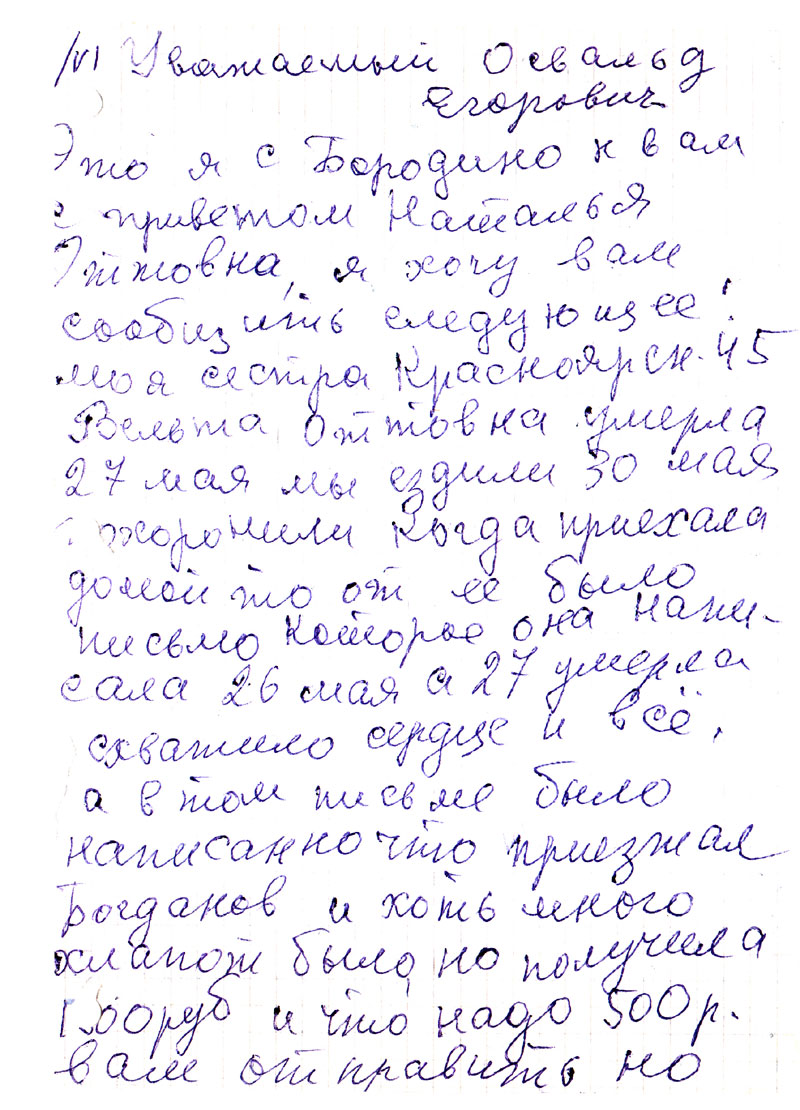 /VI Уважаемый Освальд
Егорович
Это я с Бородино к вам
с приветом Наталья
Оттовна, я хочу вам
сообщить следующее!
моя сестра Красноярск-45
Вельта Оттовна умерла
27 мая мы ездили 30 мая
похоронили когда приехала
домой то от ее было
письмо которое она напи-
сала 26 мая а 27 умерла
схватило сердце и всё.
а в том письме было
написанно что приезжал
Богданов и хоть много
хлапот было, но получила
и что надо 500 р.
вам отправить но